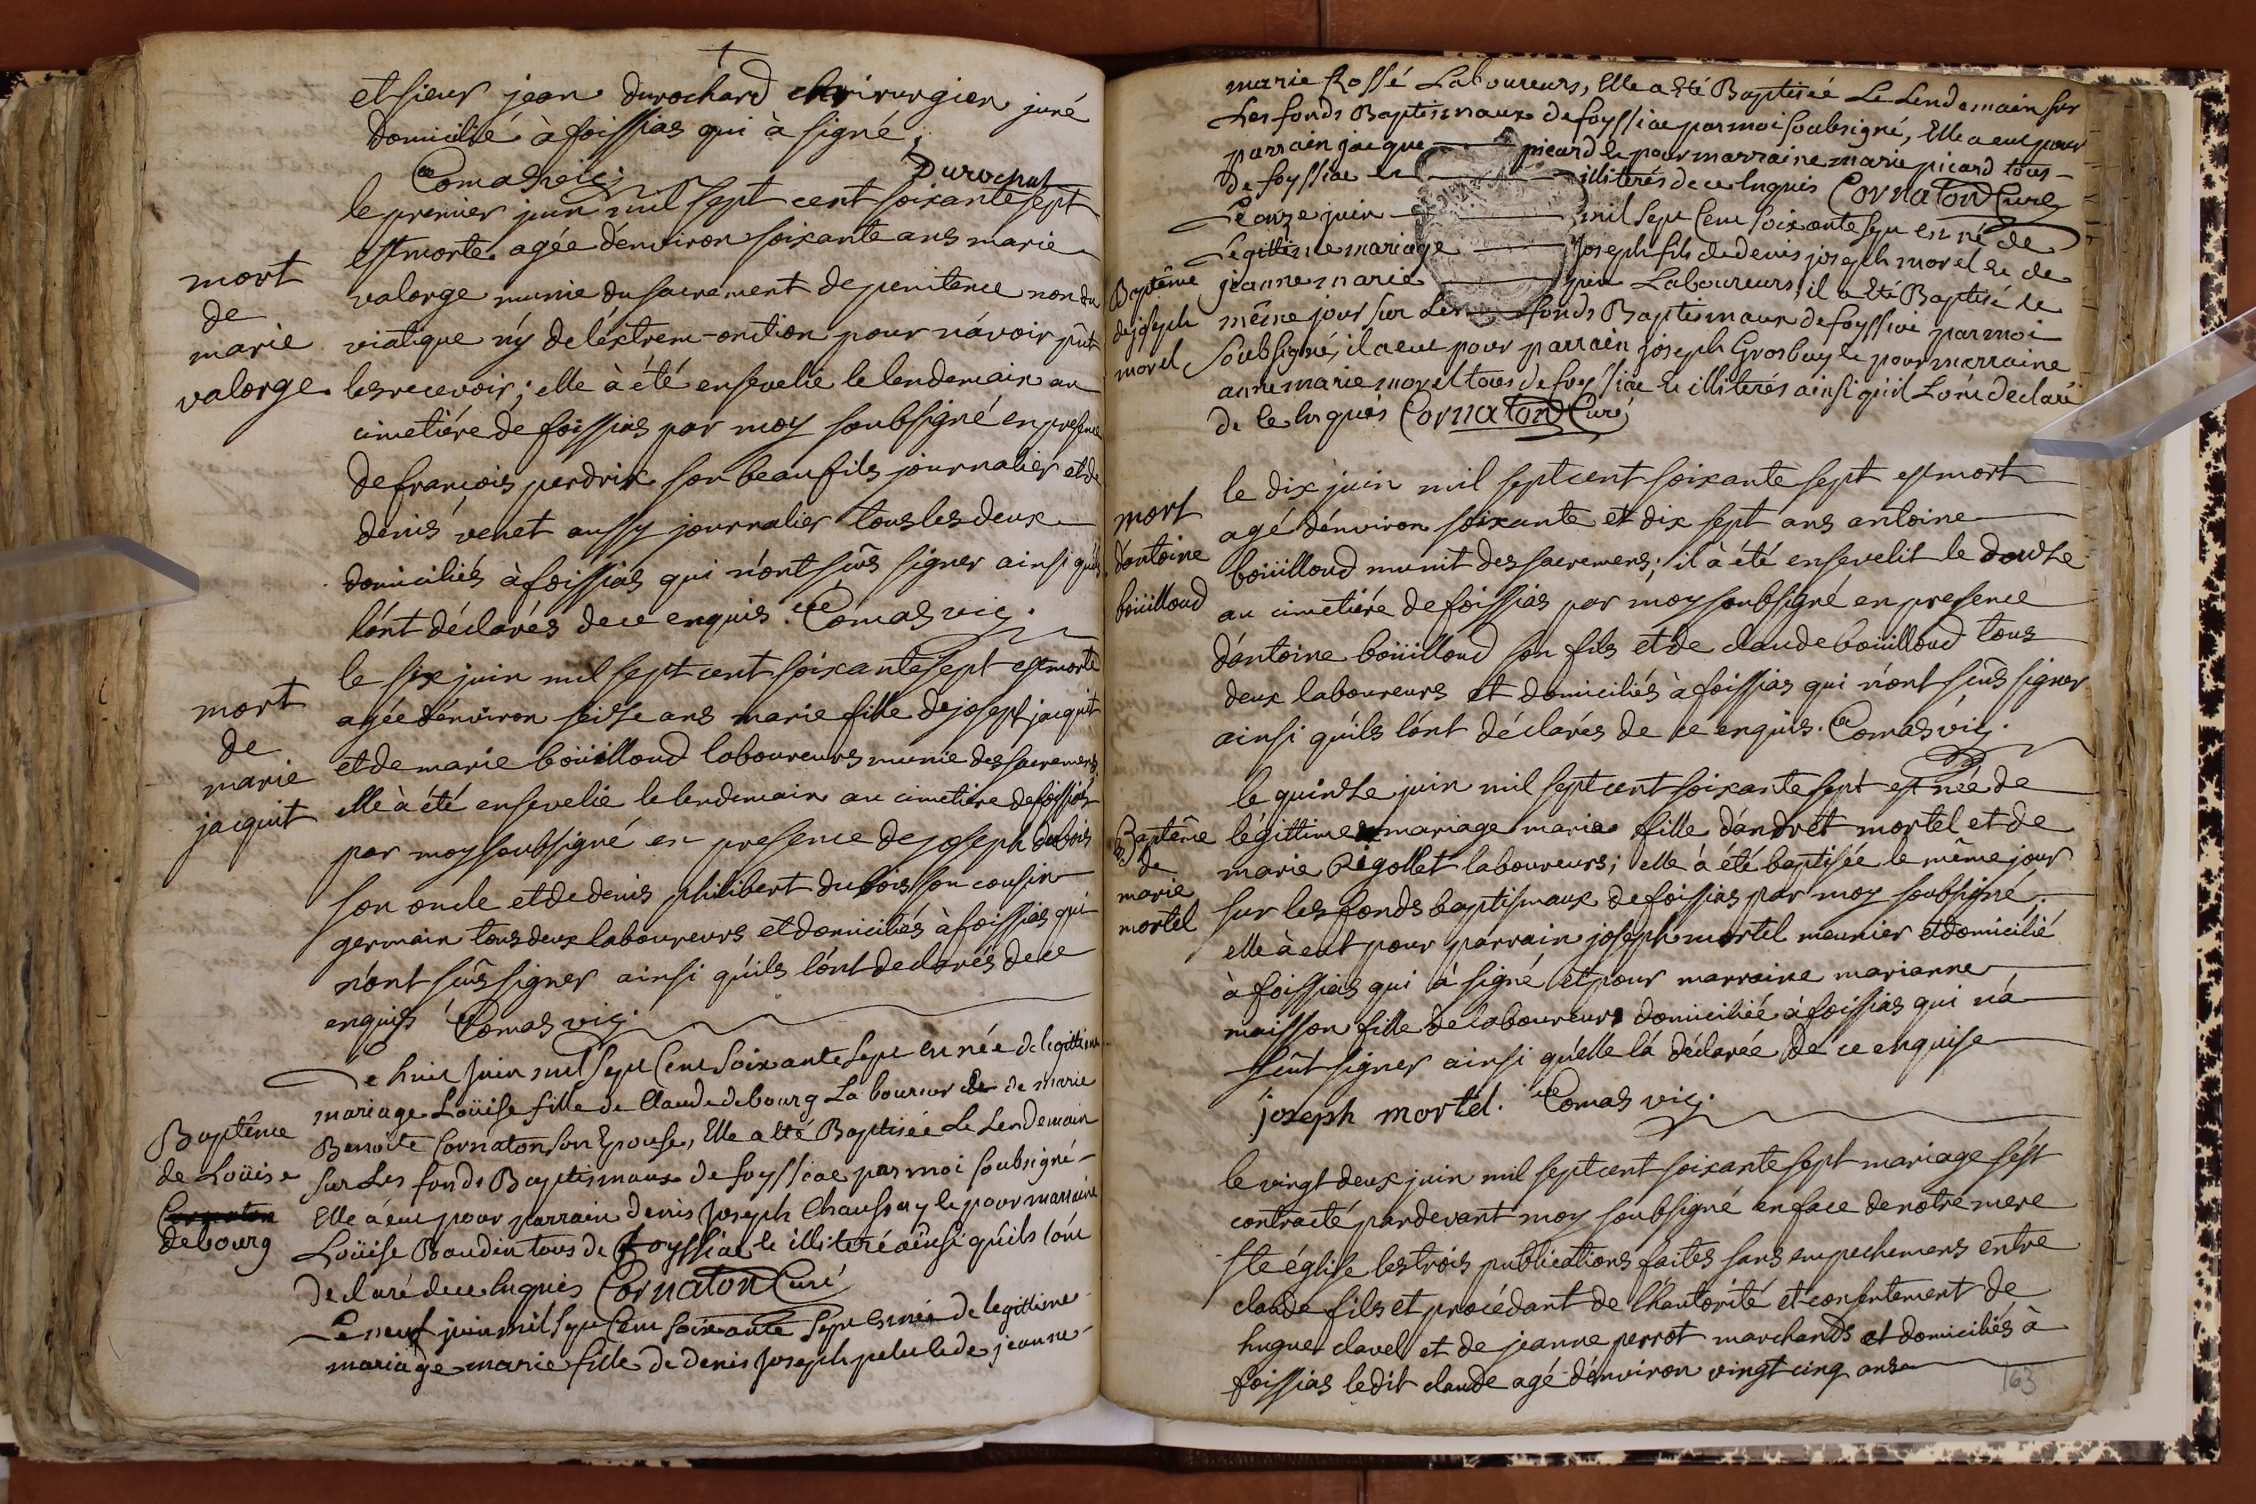 et sieur jean durochard chirurgien juré
domicilié à foissias qui à signé
Comas vic: Durochat
le premier juin mil sept cent soixante sept
est morte agée d'environ soixante ans marie
mort
de
marie
valorge
valorge munie du sacrement de penitence non du
viatique n'y de l'éxtrem-onction pour n'avoir pût
les recevoir; elle à été ensevelie le lendemain au
cimetiére de foissias par moy soubsigné en presence
de françois perdrix son beaufils journalier et de
denis venet aussy journalier tous les deux
domiciliés à foissias qui n'ont sûs signer ainsi qu'ils
l'ónt déclarés de ce enquis. Comas vic:
le six juin mil sept cent soixante sept est morte
mort
de
marie
jacquit
agée d'environ seisze ans marie fille de joseph jacquit
et de marie boüilloud laboureurs munie des sacremens
elle à été ensevelie le lendemain au cimetiere de foissias
par moy soubsigné en presence de joseph dubois
son oncle et de denis philibert dubois son cousin
germain tous deux laboureurs et domiciliés à foissias qui
n'ont sûs signer ainsi qu'ils l'ónt declarés de ce
enquis Comas vic:
Le huit Juin mil sept Cent Soixante Sept est née de legittime
mariage Loüise fille de Claude debourg Laboureur et de marie
Baptême
de Loüise
Cornaton
debourg
Benoite Cornaton son Epouse, Elle a été Baptisée Le Lendemain
Sur Les fonds Baptismaux de foyssiac par moi soubsigné
Elle a eut pour parrain denis Joseph Chaussay et pour marraine
Loüise Baudin tous de foyssiac et illiteré ainsi qu'ils l'ont
declaré de ce Enquis Cornaton Curé
Le neuf juin mil sept Cent soixante sept est née de legittime
mariage marie fille de denis Joseph pelu et de jeanne
marie Rossé Laboureurs, Elle a été Baptisée Le Lendemain sur
Les fonds Baptismaux de foyssiac par moi soubsigné, Elle a eut pour
parrain jacque picard et pour marraine marie picard tous
de foyssiac et illiterés de ce Enquis Cornaton Curé
Le onze juin mil sept Cent soixante sept est né de
Légittime mariage Joseph fils de denis joseph morel et de
Baptême
de joseph
morel
jeanne marie Laboureurs, il a été Baptisé le
même jour sur Les fonds Baptismaux de foyssiac par moi
Soubsigné, il a eut pour parrain joseph Grosbuy et pour marraine
anne marie morel tous de foyssiac et illiterés ainsi qu'il L'ont declaré
de ce Enquis Cornaton Curé
le dix juin mil sept cent soixante sept est mort
mort
d'antoine
boüilloud
agé d'environ soixante et dix sept ans antoine
boüilloud munit des sacremens; il à été ensevelit le douse
au cimetiére de foissias par moy soubsigné en presence
d'antoine boüilloud son fils et de claude boüilloud tous
deux laboureurs et domiciliés à foissias qui n'ont sûs signer
ainsi qu'ils l'ónt déclarés de ce enquis. Comas vic:
le quinse juin mil sept cent soixante sept est née de
Baptême
de
marie
mortel
légittime mariage marie fille d'andrét mortel et de
marie Rigollet laboureurs; elle à été baptisée le même jour
sur les fonds baptismaux de foissias par moy soubsigné.
elle à eut pour parrain joseph mortel meunier et domicilié
à foissias qui à signé, et pour marraine marianne
maisson fille de laboureurs domiciliée à foissias qui n'a
sçût signer ainsi qu'elle l'à déclarée de ce enquise
joseph mortel. Comas vic:
le vingt deux juin mil sept cent soixante sept mariage s'ést
contracté pardevant moy soubsigné en face de notre mere
ste église les trois publications faites sans empechemens entre
claude fils et procédant de l'hautorité et consentement de
hugue clavel et de jeanne perrot marchands et domiciliés à
foissias ledit claude agé d'environ vingt cinq ans
163